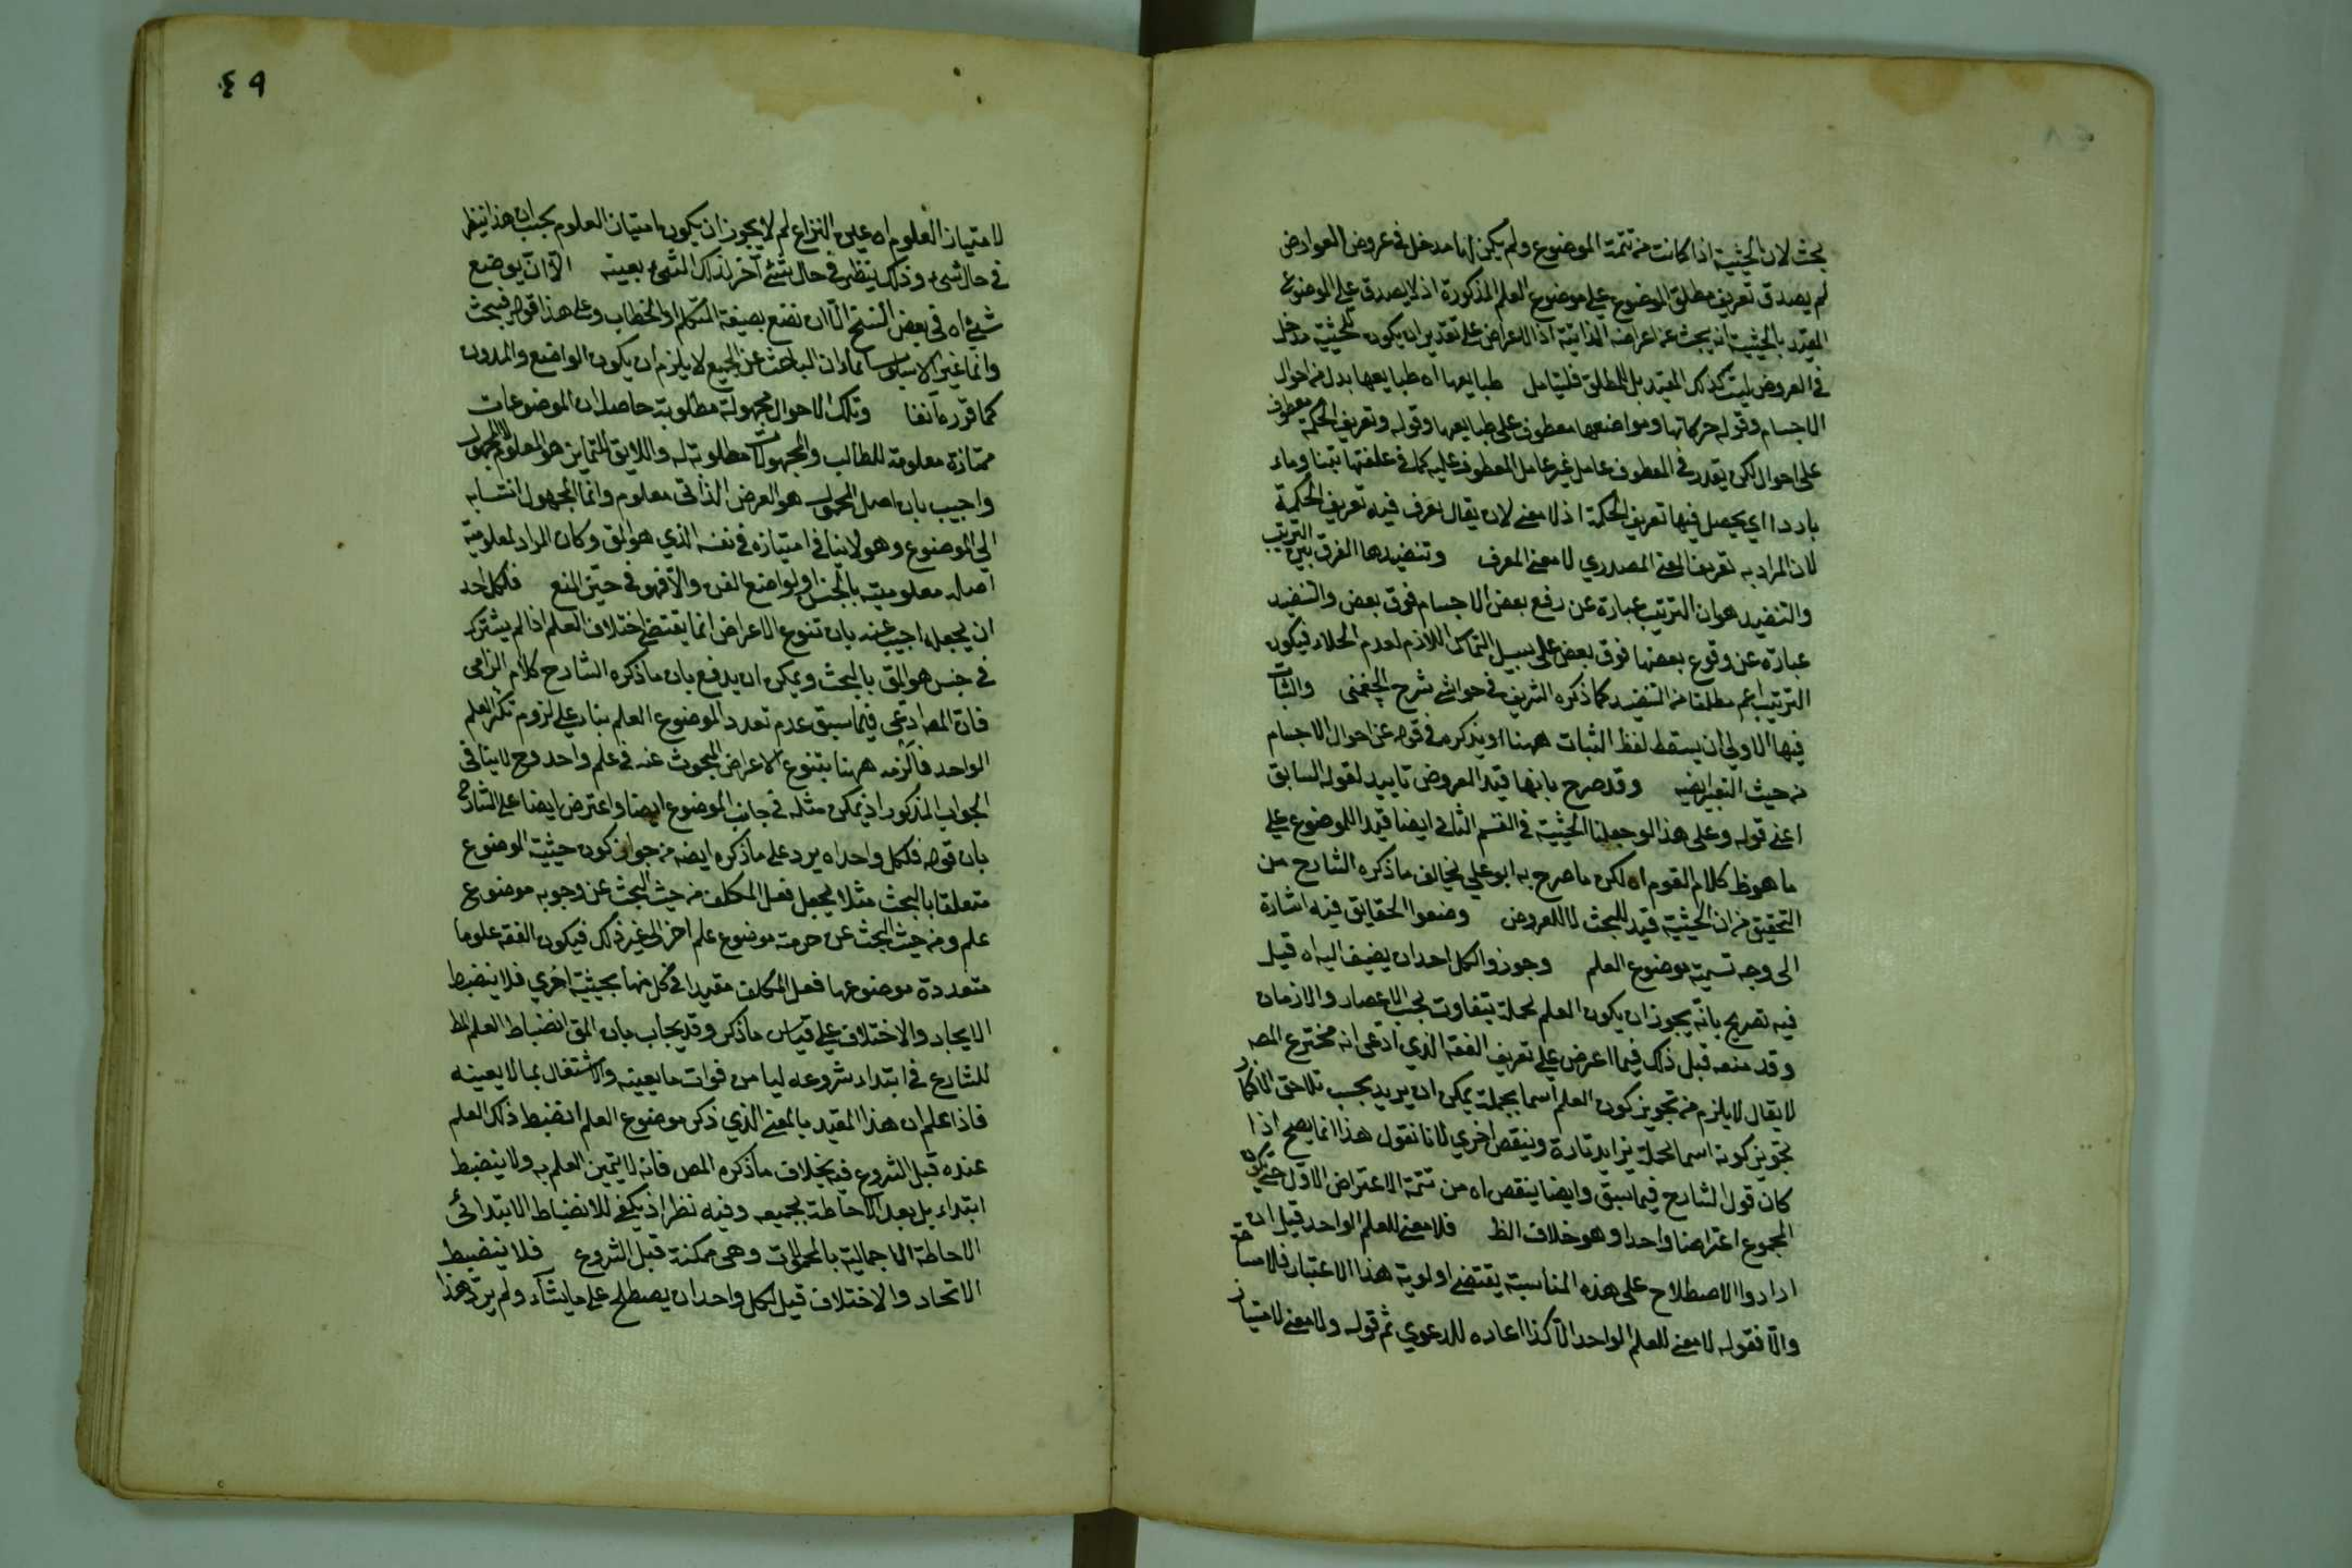 بحث لان الحيثية اذا كانت من تتمة الموضوع ولم يكن لها مدخل في عروض العوارض
لم يصدق تعريف مطلق الموضوع على موضوع العلم المذكورة اذ لا يصدق على الموضوع
المقيد بالحيثية انه يبحث عن اعراضه الذاتية اذ الاعراض على تقدير ان يكون للحيثية مدخل
في العروض ليت كذلك المقيد بل للمطلق فليتأمل طبايعها اه طبايعها بدل من احوال
الاجسام وقوله حركاتها ومواضعها معطوف على طبايعها وقوله وتعريف الحكمة معطوف
على احوال لكن يقدر في المعطوف عامل غير عامل المعطوف عليه كما في علفتها تبنا وماء
باردا اي يحصل فيها تعريف الحكمة اذ لا معنى لان يقال يعرف فيه تعريف الحكمة
لان المراد به تعريف المعنى المصدري لا معنى المعرف وتنضيدها الفرق بين الترتيب
والتنضيد هو ان الترتيب عبارة عن رفع بعض الاجسام فوق بعض والتنضيد
عبارة عن وقوع بعضها فوق بعض على سبيل التماس اللازم لعدم الخلاء فيكون
الترتيب اعم مطلقا من التنضيد كما ذكره الشريف في حواشي شرح الچغمني والثبات
فيها الاولى ان يسقط لفظ الثبات ههنا او يذكره في قوله عن احوال الاجسام
من حيث التغير ايضه وقد صرح بانها قيد العروض تاييد لقوله السابق
اعني قوله وعلى هذا لو جعلنا الحيثية في القسم الثاني ايضا قيدا للموضوع على
ما هو ظ كلام القوم اه لكن ما صرح به ابو علي يخالف ما ذكره الشارح من
التحقيق من ان الحيثية قيد للبحث لا للعروض وضعوا الحقايق فيه اشارة
الى وجه تسمية موضوع العلم وجوزوا لكل احد ان يضيف اليه اه قيل
فيه تصريح بانه يجوز ان يكون العلم لجملة يتفاوت بحسب الاعصار والازمان
وقد منعه قبل ذلك فيما اعرض على تعريف الفقه الذي ادعى انه مخترع المصه
لا يقال لا يلزم من تجويز كون العلم اسما لجملة يمكن ان يزيد بحسب تلاحق الافكار
تجويز كونه اسما لجملة يتزايد تارة وينقص اخرى لانا نقول هذا انما يصح اذا
كان قول الشارح فيما سبق وايضا ينقص اه من تتمة الاعتراض الاول حتى يكون
المجموع اعتراضا واحدا وهو خلاف الظ فلا معنى للعلم الواحد قيل ان
ارادوا الاصطلاح على هذه المناسبة يقتضي اولوية هذا الاعتبار فلا مشاحة
والا فقوله لا معنى للعلم الواحد الا كذا اعاده للدعوي ثم قوله ولا معنى لامتياز
٤٩
لامتياز العلوم اه عين النزاع لم لا يجوز ان يكون امتياز العلوم بحسب ان هذا ينظر
في حال شيء وذلك ينظر في حال شئ آخر لذلك الشيء بعينه الا ان يوضع
شيء اه في بعض النسخ الا ان نضع بصيغة المتكلم او الخطاب وعلى هذا قوله فيبحث
كما قرره آنفا وتلك الاحوال مجهولة مطلوبة حاصله ان الموضوعات
ممتازة معلومة للطالب والمجهولات مطلوبة له واللايق للتمايز هو المعلوم لا المجهول
واجيب بان اصل المحمول هو العرض الذاتي معلوم وانما المجهول انتسابه
الى الموضوع وهو لا ينافي امتيازه في نفسه الذي هو المق وكان المراد لمعلومية
اصله معلوميته بالجنس او لواضع الفن والا فهو في حيز المنع فلكل احد
ان يجعله اجيب عنه بان تنوع الاعراض انما يقتضي اختلاف العلم اذا لم يشترك
في جنس هو المق بالبحث ويمكن ان يدفع بان ما ذكره الشارح كلام الزامي
فان المصه ادعى فيما سبق عدم تعدد الموضوع العلم بناء على لزوم تكثر العلم
الواحد فالزمه ههنا بتنوع الاعراض المبحوث عنه في علم واحد وح لا ينافي
الجواب المذكور اذ يمكن مثله في جانب الموضوع ايضا واعترض ايضا على الشارح
بان قوله فلكل واحد اه يرد على ما ذكره ايضه من جواز كون حيثية الموضوع
متعلقا بالبحث مثلا يجعل فعل المكلف من حيث البحث عن وجوبه موضوع
علم ومن حيث البحث عن حرمته موضوع علم اخر الى غير ذلك فيكون الفقه علوما
متعددة موضوعها فعل المكلف مقيدا في كل منها بحيثية اخري فلا ينضبط
الايجاد والاختلاف على قياس ما ذكر وقد يجاب بان المق انضباط العلم المط
للشارع في ابتداء شروعه ليامن فوات ما يعينه والاشتغال بما لا يعينه
فاذا علم ان هذا المقيد بالمعنى الذي ذكر موضوع العلم انضبط ذلك العلم
عنده قبل الشروع فيه بخلاف ما ذكره المص فانه لا يتميز العلم به ولا ينضبط
ابتداء بل بعد الاحاطة بجميعه وفيه نظر اذ يكفي للانضباط الابتدائي
الاحاطة الاجمالية بالمحمولات وهي ممكنة قبل الشروع فلا ينضبط
الاتحاد والاختلاف قيل لكل واحد ان يصطلح على ما يشاء ولم يرد هذا